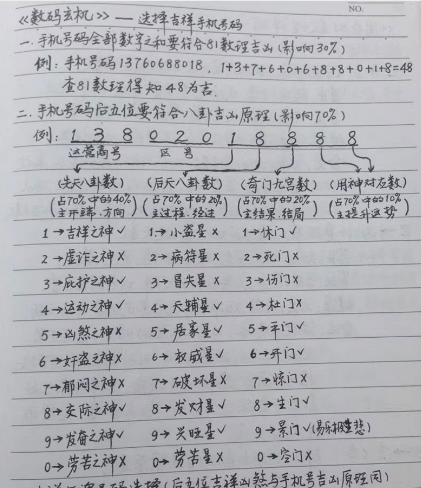 NO.
《数码玄机》——选择吉祥手机号码
一.手机号码全部数字之和要符合81数理吉凶(影响30%)
例:手机号码13760688018, 1+3+7+6+0+6+8+8+0+1+8=48
查81数理得知48为吉.
二.手机号码后五位要符合八卦吉凶原理(影响70%)
例: 1 3 8 0 2 0 1 8 8 8 8
运营商号 区号
(先天八卦数) (后天八卦数) (奇门九宫数) (用神对应数)
(占70%中的40%) (占70%中的20%) (占70%中的20%) (占70%中的10%)
(主开端.方向) (主过程.经过) (主结果.结局) (主提升运势)
1→吉祥之神✓ 1→小盗星× 1→休门✓
2→虚诈之神× 2→病符星× 2→死门×
3→庇护之神✓ 3→冒失星× 3→伤门×
4→运动之神✓ 4→天辅星✓ 4→杜门×
5→凶煞之神× 5→居家星✓ 5→平门✓
6→奸盗之神× 6→权威星✓ 6→开门✓
7→郁闷之神× 7→破坏星× 7→惊门×
8→交际之神✓ 8→发财星✓ 8→生门✓
9→发奋之神✓ 9→兴旺星✓ 9→景门✓(易乐极生悲)
0→劳苦之神× 0→劳苦星× 0→空门×
号码选择(后五位吉祥凶煞与手机号吉凶原理同)